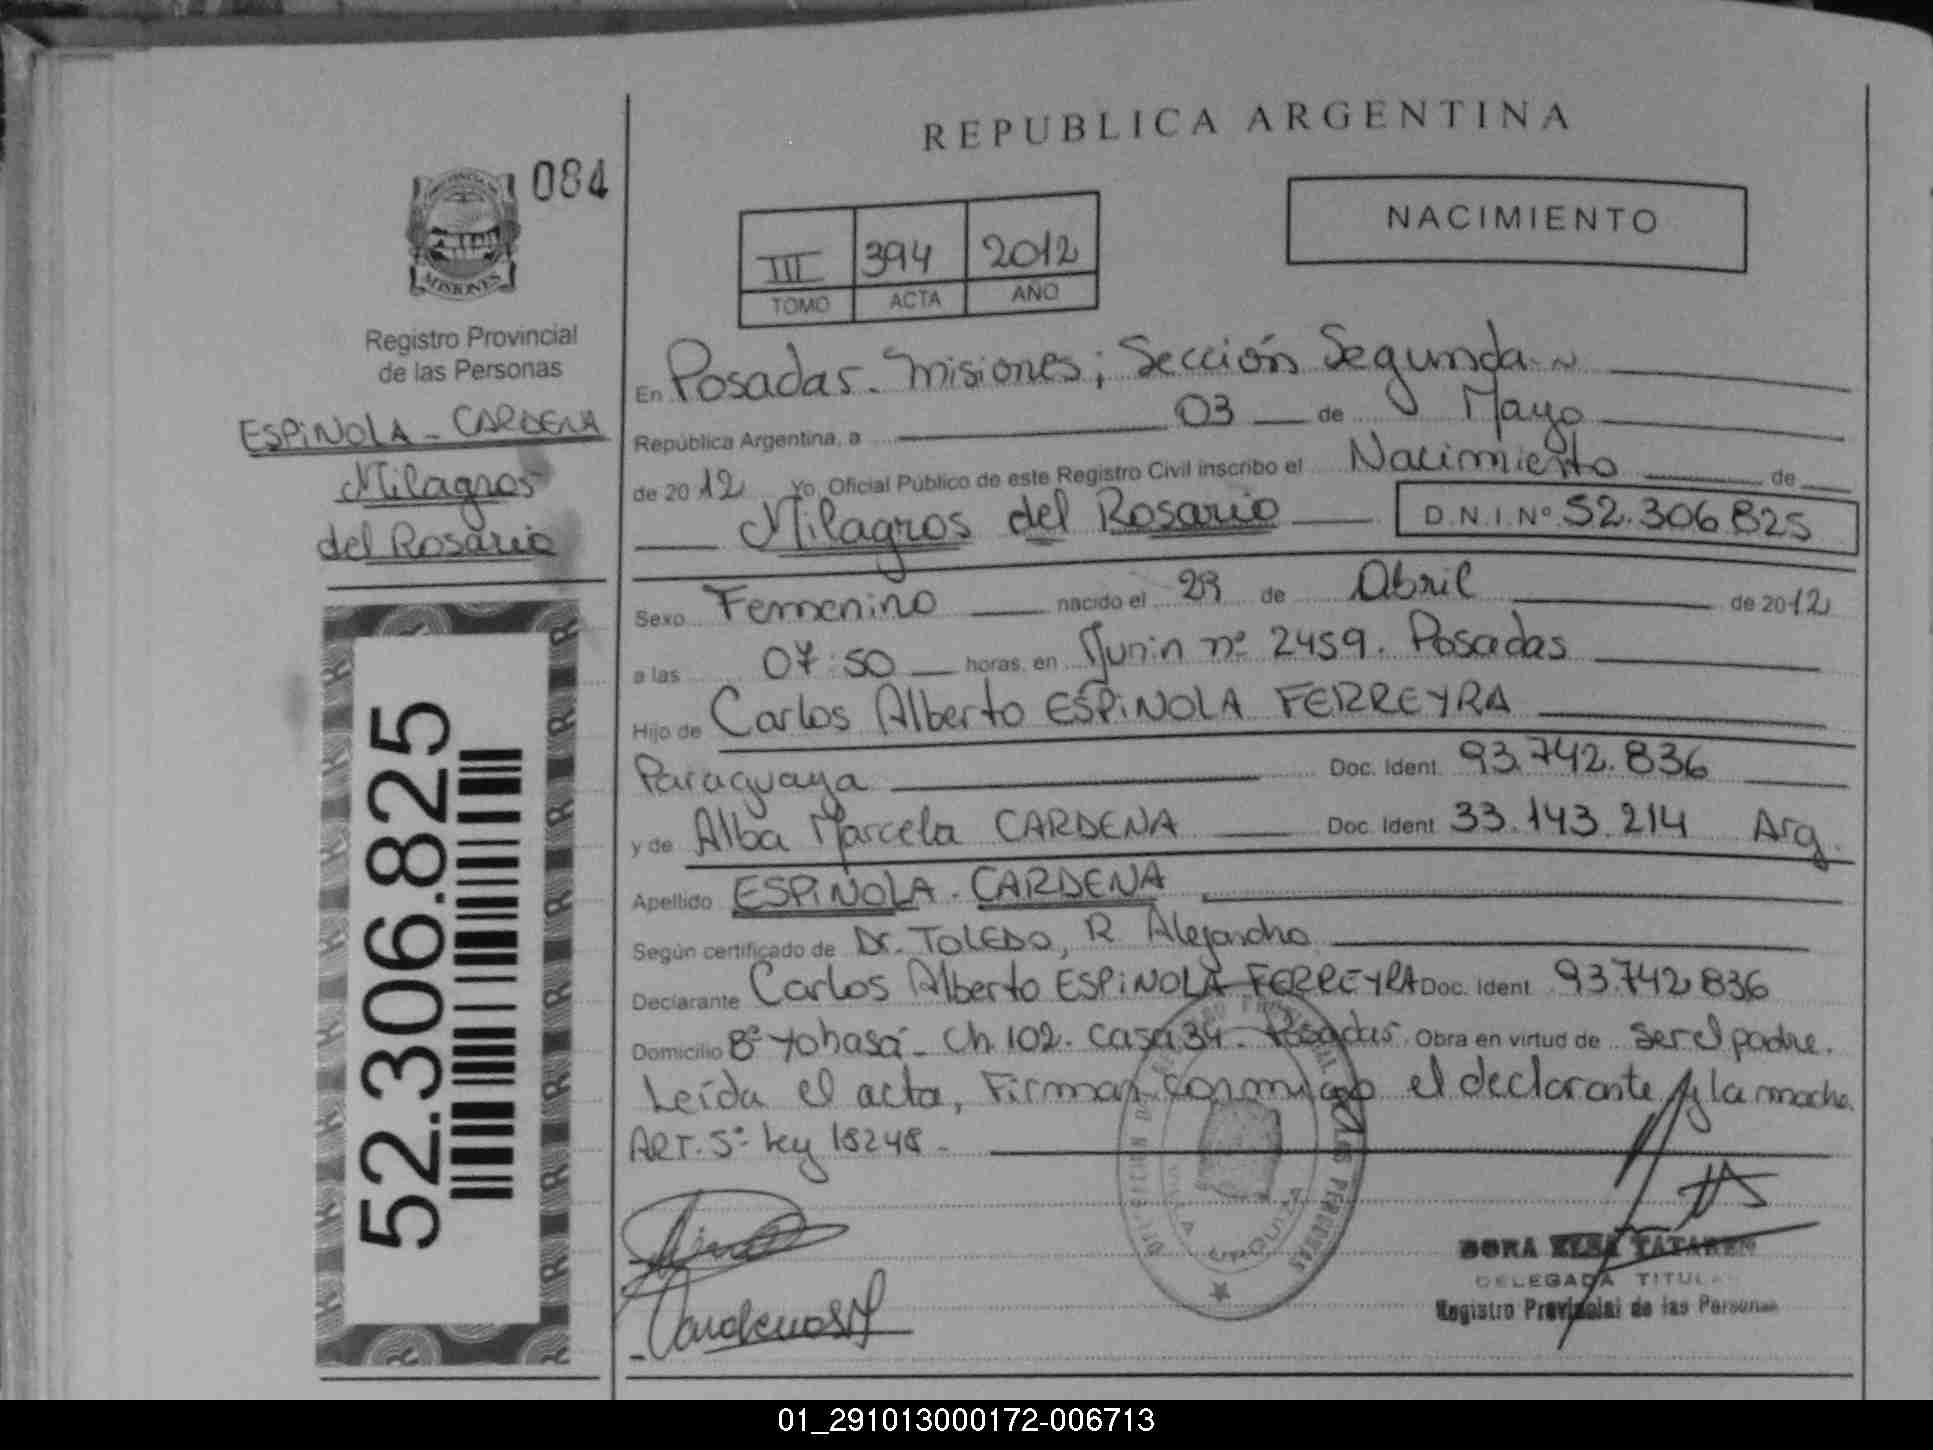 084
MISIONES
Registro Provincial
de las Personas
ESPINOLA - CARDENA
Milagros
del Rosario
52.306.825
REPUBLICA ARGENTINA
NACIMIENTO
III 394 2012
TOMO ACTA AÑO
En Posadas. Misiones; Sección Segunda
República Argentina, a 03 de Mayo
de 2012 Yo, Oficial Público de este Registro Civil inscribo el Nacimiento de
Milagros del Rosario D.N.I. Nº 52.306.825
Sexo Femenino nacido el 29 de Abril de 2012
a las 07:50 horas, en Junin nº 2459. Posadas
Hijo de Carlos Alberto ESPINOLA FERREYRA
Paraguaya Doc. Ident. 93.742.836
y de Alba Marcela CARDENA Doc. Ident. 33.143.214 Arg.
Apellido ESPINOLA - CARDENA
Según certificado de Dr. TOLEDO, R. Alejandro
Declarante Carlos Alberto ESPINOLA FERREYRA Doc. Ident. 93.742.836
Domicilio Bº Yohasá - Ch 102. Casa 34. Posadas. Obra en virtud de ser el padre.
Leída el acta, Firman conmigo el declarante y la madre.
ART. 5º Ley 18248 -
DORA ELSA
DELEGADA TITULAR
Registro Provincial de las Personas
01_291013000172-006713